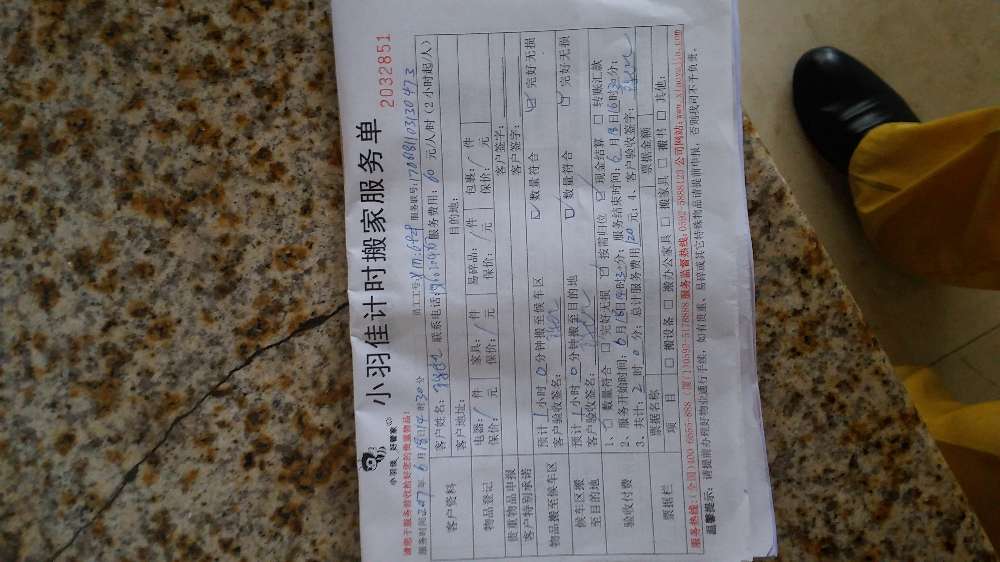 小羽佳 好管家
小羽佳计时搬家服务单
2032851
请您于服务前收检好您的贵重物品!
服务时间2017年6月18日14时30分 员工工号: XM0698 服务联号:
客户资料 客户姓名: 联系电话: 服务费用: 60 元/人/时(2小时起/人)
客户地址: 目的地:
物品登记 电器: / 件 家具: / 件 易碎品: / 件 包裹: / 件
保价: / 元 保价: / 元 保价: / 元 保价: / 元
贵重物品申报 客户签字:
客户特别承诺 客户签字:
物品搬至候车区 预计 1 小时 0 分钟搬至候车区 数量符合 完好无损
客户验收签名:
候车区搬至目的地 预计 1 小时 0 分钟搬至目的地 数量符合 完好无损
客户验收签名:
验收付费 1、 数量符合 完好无损 按需归位 现金结算 转账汇款
2、服务开始时间: 6月18日14时30分; 服务结束时间: 6月18日16时30分;
3、共计: 2 时 0 分; 总计服务费用 120 元; 4、客户验收签字:
票据栏 票据名称 票据金额
项 目 搬设备 搬办公家具 搬家具 搬出 其他:
服务热线:(全国)400-6855-888 (厦门)0592-5176888 服务监督热线:0592-5888123 公司网站:www.xiaoyujia.com
温馨提示: 请提前办理好物业通行手续, 如有贵重、易碎或其它特殊物品请提前申报, 否则我司不予负责。